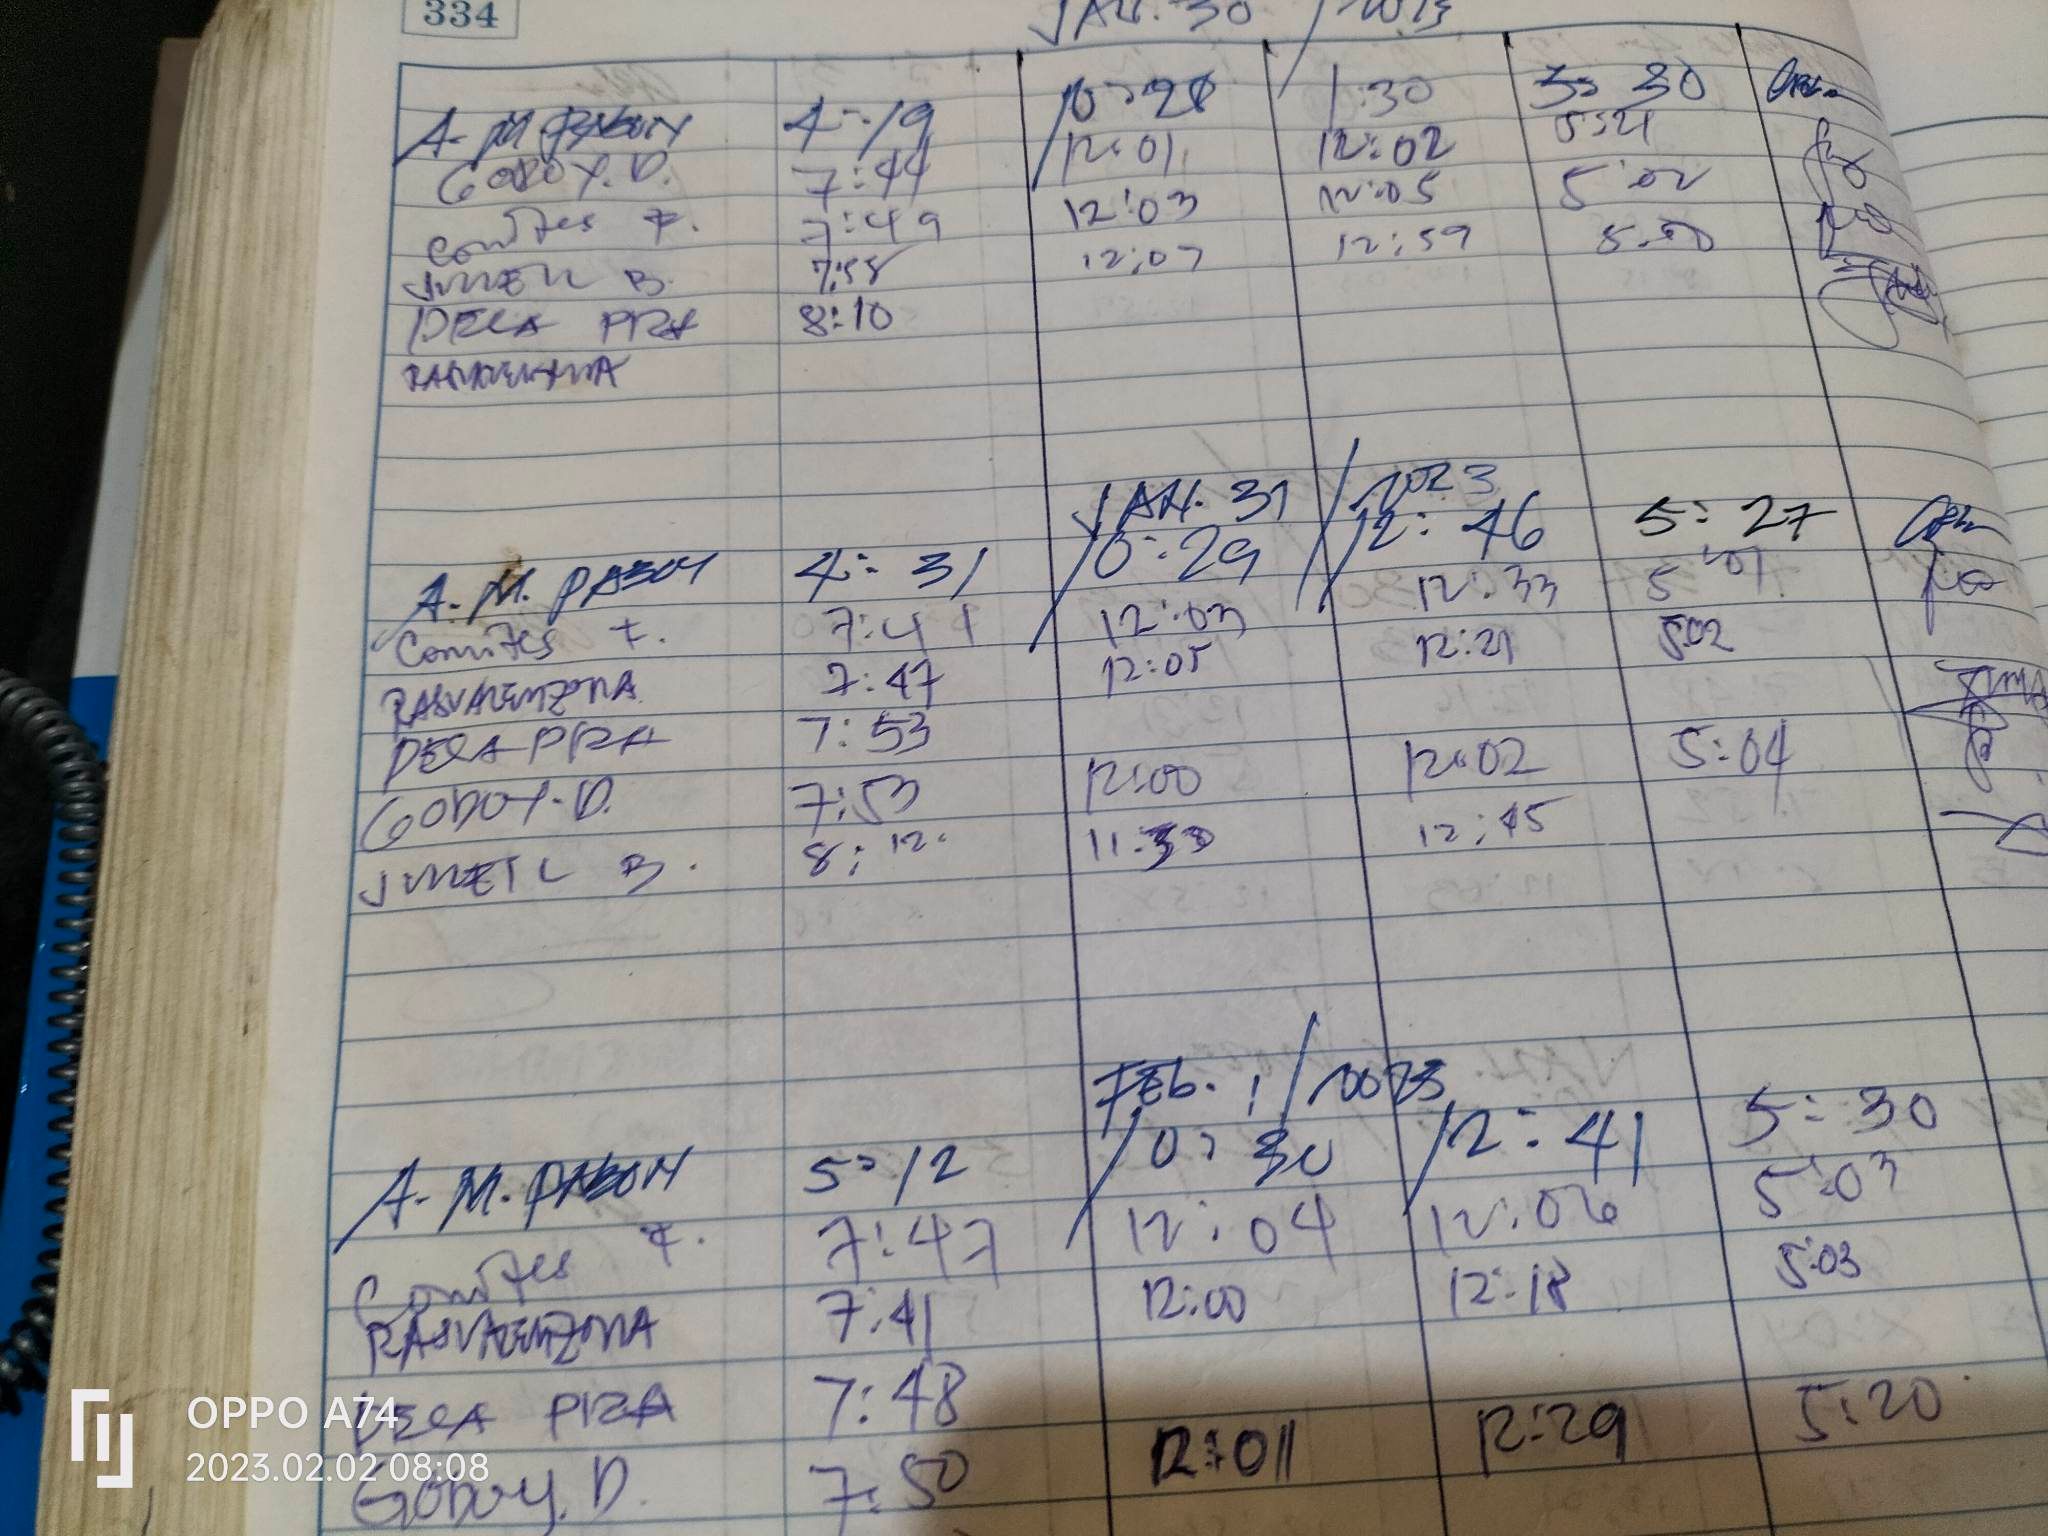 334
JAN. 30 / 2023
A. M. PABON 4:19 10:28 1:30 5:30
GODOY. D. 7:44 12:01 12:02 5:21
Comites F. 7:49 12:03 12:05 5:02
JMEIL B. 7:58 12:07 12:59 5:00
DELA PRA 8:10
RASVALENZONA
JAN. 31 / 2023
A. M. PABON 4:31 10:29 12:46 5:27
Comites F. 7:41 12:03 12:33 5:01
RASVALENZONA 7:47 12:05 12:21 5:02
DELA PRA 7:53
GODOY. D. 7:53 12:00 12:02 5:04
JMEIL B. 8:12 11:53 12:45
FEb. 1 / 2023
A. M. PABON 5:12 10:30 12:41 5:30
Comites F. 7:47 12:04 12:06 5:03
RASVALENZONA 7:41 12:00 12:18 5:03
DELA PRA 7:48
GODOY. D. 7:50 12:01 12:29 5:20
OPPO A74
2023.02.02 08:08